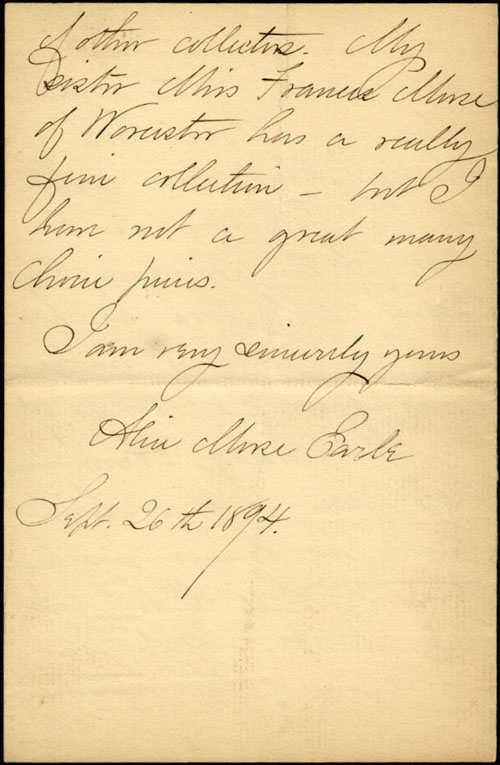 of other collectors. My
sister Miss Frances Morse
of Worcester has a really
fine collection – but I
have not a great many
choice pieces.
I am very sincerely yours
Alice Morse Earle
Sept. 26th 1894.